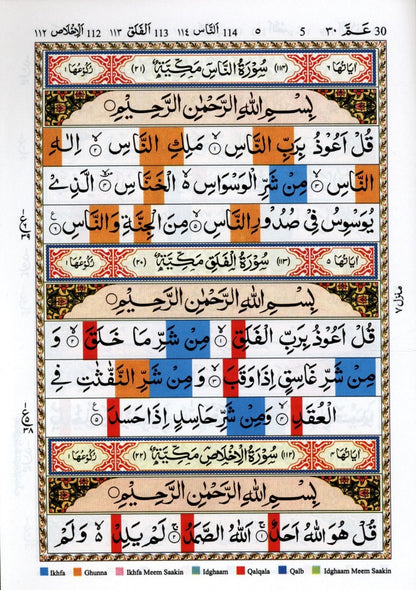 30 عَمَّ ٣٠ 5 ٥ 114 اَلنَّاس ١١٤ 113 اَلْفَلَق ١١٣ 112 اَلْاِخْلَاص ١١٢
اٰيَاتُهَا ٦ (١١٤) سُوْرَةُ النَّاسِ مَكِّيَّةٌ (٢١) رُكُوْعُهَا ١
بِسْمِ اللّٰهِ الرَّحْمٰنِ الرَّحِيْمِ ○
قُلْ اَعُوْذُ بِرَبِّ النَّاسِ ۙ‏﴿۱﴾ مَلِكِ النَّاسِ ۙ‏﴿۲﴾ اِلٰهِ
النَّاسِ ۙ‏﴿۳﴾ مِنْ شَرِّ الْوَسْوَاسِ ۙ۬ الْخَنَّاسِ ۪ۙ‏﴿۴﴾ الَّذِىْ
يُوَسْوِسُ فِىْ صُدُوْرِ النَّاسِ ۙ‏﴿۵﴾ مِنَ الْجِنَّةِ وَ النَّاسِ‏﴿۶﴾ ع
اٰيَاتُهَا ٥ (١١٣) سُوْرَةُ الْفَلَقِ مَكِّيَّةٌ (٢٠) رُكُوْعُهَا ١
بِسْمِ اللّٰهِ الرَّحْمٰنِ الرَّحِيْمِ ○
قُلْ اَعُوْذُ بِرَبِّ الْفَلَقِ ۙ‏﴿۱﴾ مِنْ شَرِّ مَا خَلَقَ ۙ‏﴿۲﴾ وَ
مِنْ شَرِّ غَاسِقٍ اِذَا وَقَبَ ۙ‏﴿۳﴾ وَ مِنْ شَرِّ النَّفّٰثٰتِ فِى
الْعُقَدِ ۙ‏﴿۴﴾ وَ مِنْ شَرِّ حَاسِدٍ اِذَا حَسَدَ‏﴿۵﴾ ع
اٰيَاتُهَا ٤ (١١٢) سُوْرَةُ الْاِخْلَاصِ مَكِّيَّةٌ (٢٢) رُكُوْعُهَا ١
بِسْمِ اللّٰهِ الرَّحْمٰنِ الرَّحِيْمِ ○
قُلْ هُوَ اللّٰهُ اَحَدٌ ۚ‏﴿۱﴾ اَللّٰهُ الصَّمَدُ ۚ‏﴿۲﴾ لَمْ يَلِدْ ۙ۬ وَ لَمْ
منزل ٧
Ikhfa Ghunna Ikhfa Meem Saakin Idghaam Qalqala Qalb Idghaam Meem Saakin